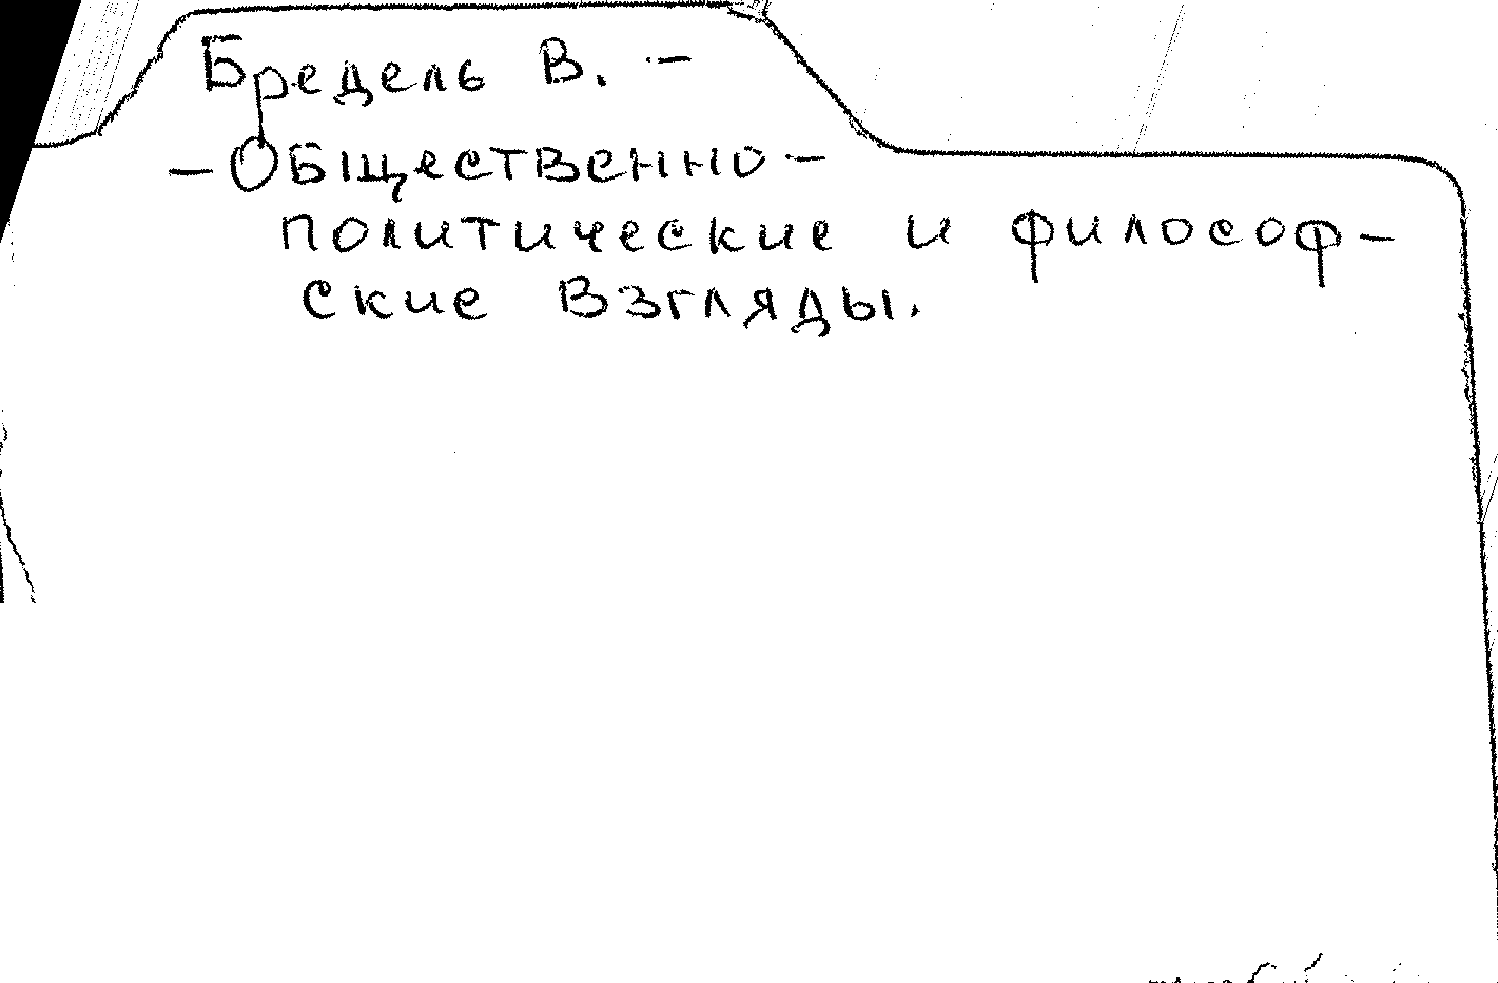 Бредель В. –
– Общественно –
политические и философ –
ские взгляды.